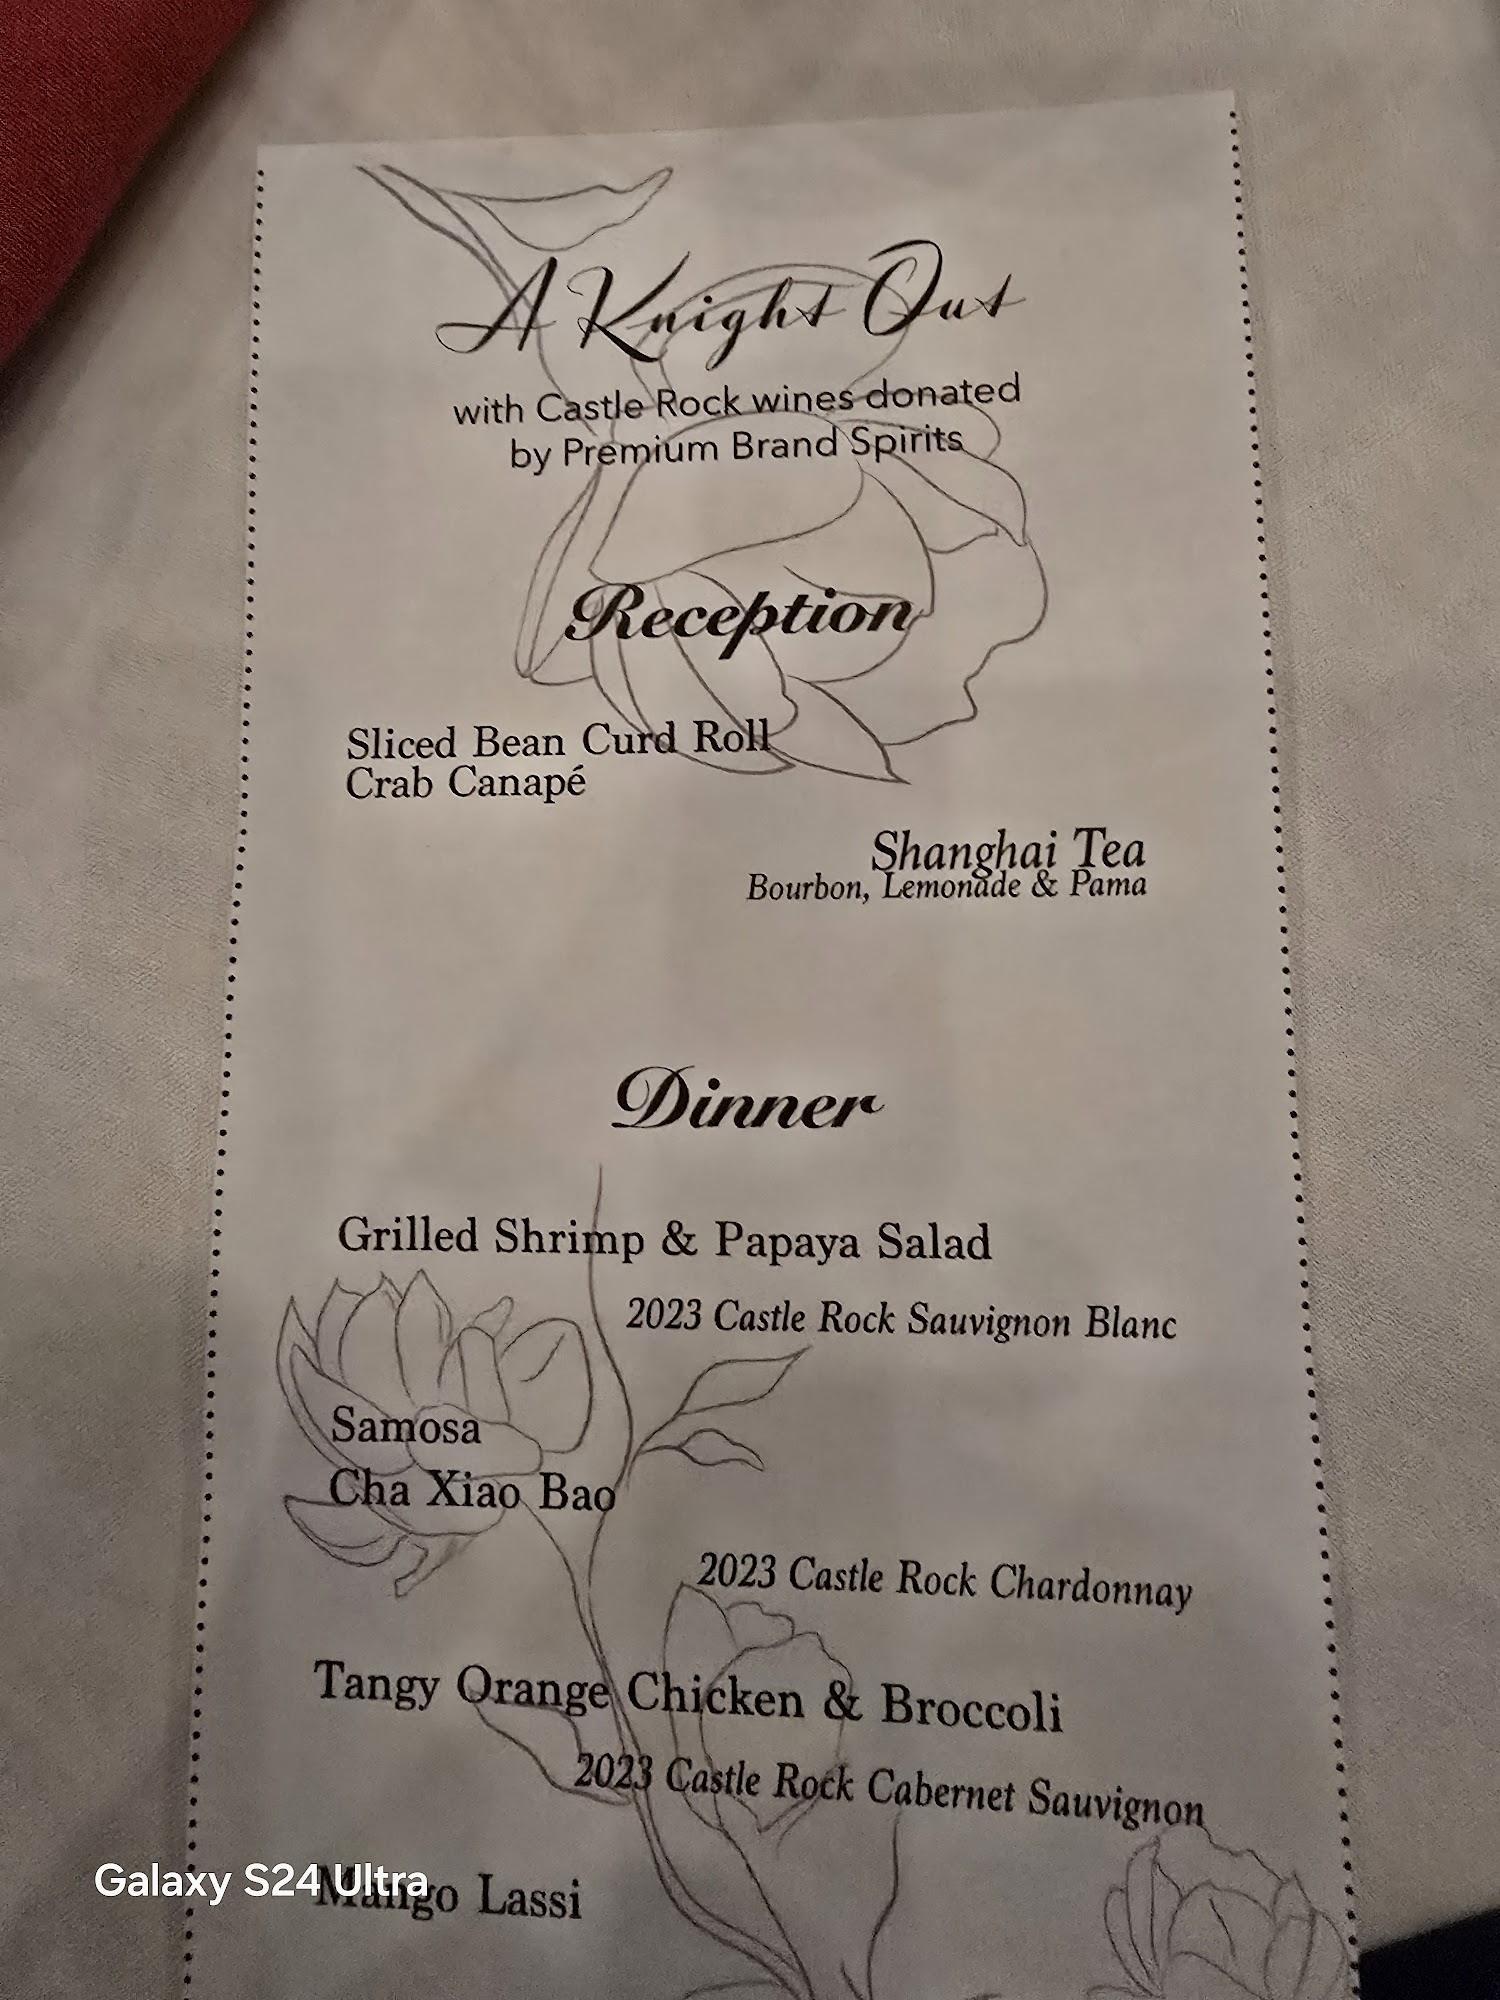 A Knight Out
with Castle Rock wines donated
by Premium Brand Spirits
Reception
Sliced Bean Curd Roll
Crab Canapé
Shanghai Tea
Bourbon, Lemonade & Pama
Dinner
Grilled Shrimp & Papaya Salad
2023 Castle Rock Sauvignon Blanc
Samosa
Cha Xiao Bao
2023 Castle Rock Chardonnay
Tangy Orange Chicken & Broccoli
2023 Castle Rock Cabernet Sauvignon
Mango Lassi
Galaxy S24 Ultra